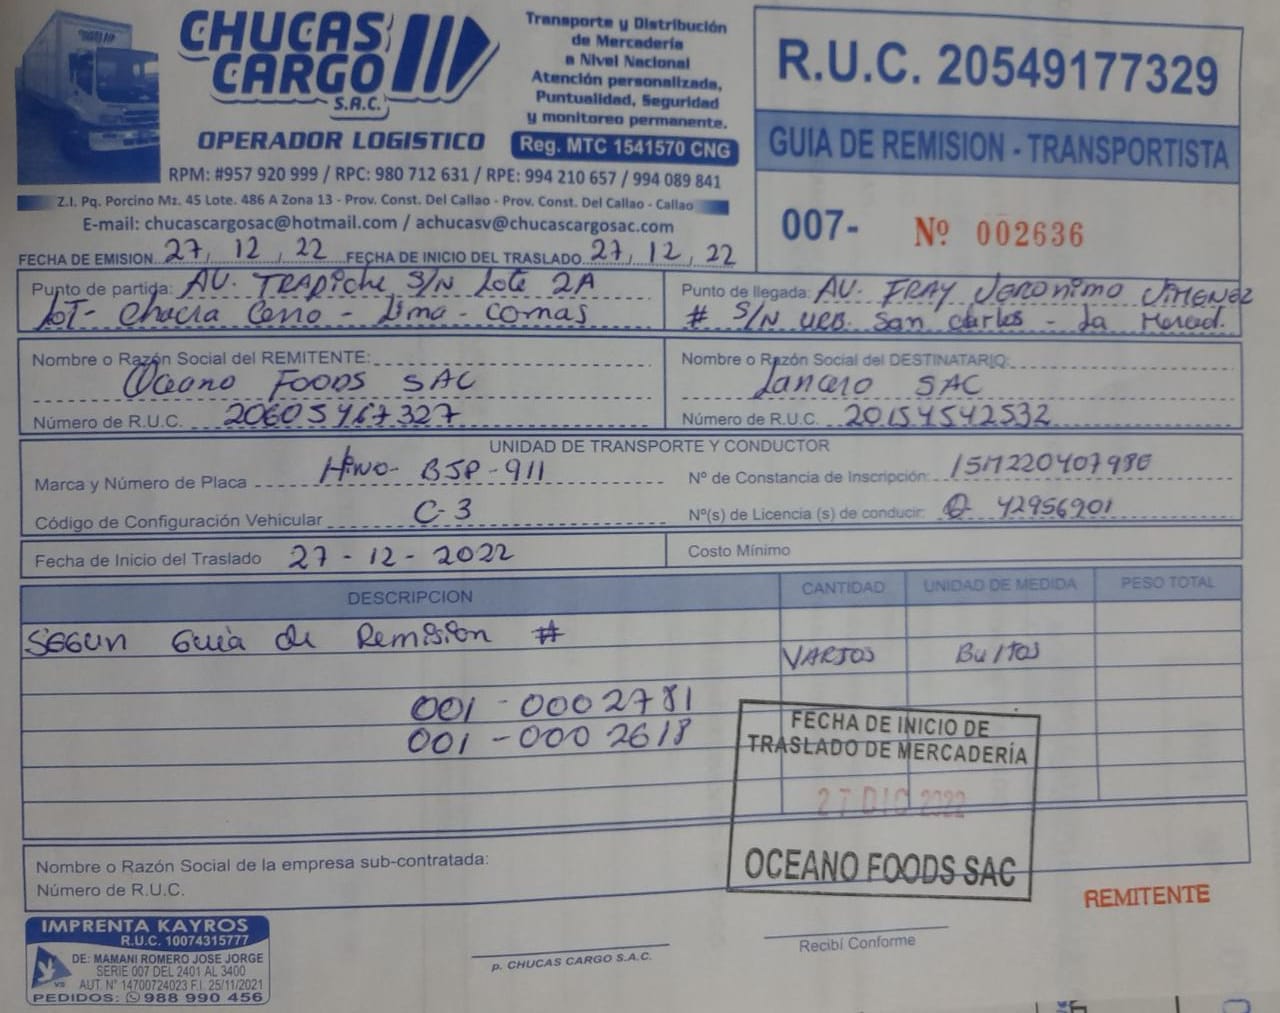 CHUCAS
CARGO
S.A.C.
OPERADOR LOGISTICO
Transporte y Distribución
de Mercadería
a Nivel Nacional
Atención personalizada,
Puntualidad, Seguridad
y monitoreo permanente.
Reg. MTC 1541570 CNG
RPM: #957 920 999 / RPC: 980 712 631 / RPE: 994 210 657 / 994 089 841
Z.I. Pq. Porcino Mz. 45 Lote. 486 A Zona 13 - Prov. Const. Del Callao - Prov. Const. Del Callao - Callao
E-mail: chucascargosac@hotmail.com / achucasv@chucascargosac.com
R.U.C. 20549177329
GUIA DE REMISION - TRANSPORTISTA
007- Nº 002636
FECHA DE EMISION 27, 12, 22 FECHA DE INICIO DEL TRASLADO 27, 12, 22
Punto de partida: AV. TRAPiche S/N Lote 2A
LOT- Chacra Cerro - Lima - Comas
Punto de llegada: AV. FRAY JERONIMO JIMENEZ
# S/N URB. San Carlos - La Merced.
Nombre o Razón Social del REMITENTE:
Oceano FOODS SAC
Número de R.U.C. 20605467327
Nombre o Razón Social del DESTINATARIO:
Lancero SAC
Número de R.U.C. 20154542532
UNIDAD DE TRANSPORTE Y CONDUCTOR
Marca y Número de Placa HINO- BJP-911
Nº de Constancia de Inscripción: 15M22040798E
Código de Configuración Vehicular C-3
Nº(s) de Licencia (s) de conducir: Q 42956901
Fecha de Inicio del Traslado 27-12-2022
Costo Mínimo
DESCRIPCION CANTIDAD UNIDAD DE MEDIDA PESO TOTAL
SEGUN Guia de Remision #
VARIOS Bultos
001 - 0002781
001 - 0002618
FECHA DE INICIO DE
TRASLADO DE MERCADERÍA
27 DIC 2022
OCEANO FOODS SAC
Nombre o Razón Social de la empresa sub-contratada:
Número de R.U.C.
REMITENTE
IMPRENTA KAYROS
R.U.C. 10074315777
DE: MAMANI ROMERO JOSE JORGE
SERIE 007 DEL 2401 AL 3400
AUT. N° 14700724023 F.I. 25/11/2021
PEDIDOS: 988 990 456
p. CHUCAS CARGO S.A.C.
Recibí Conforme